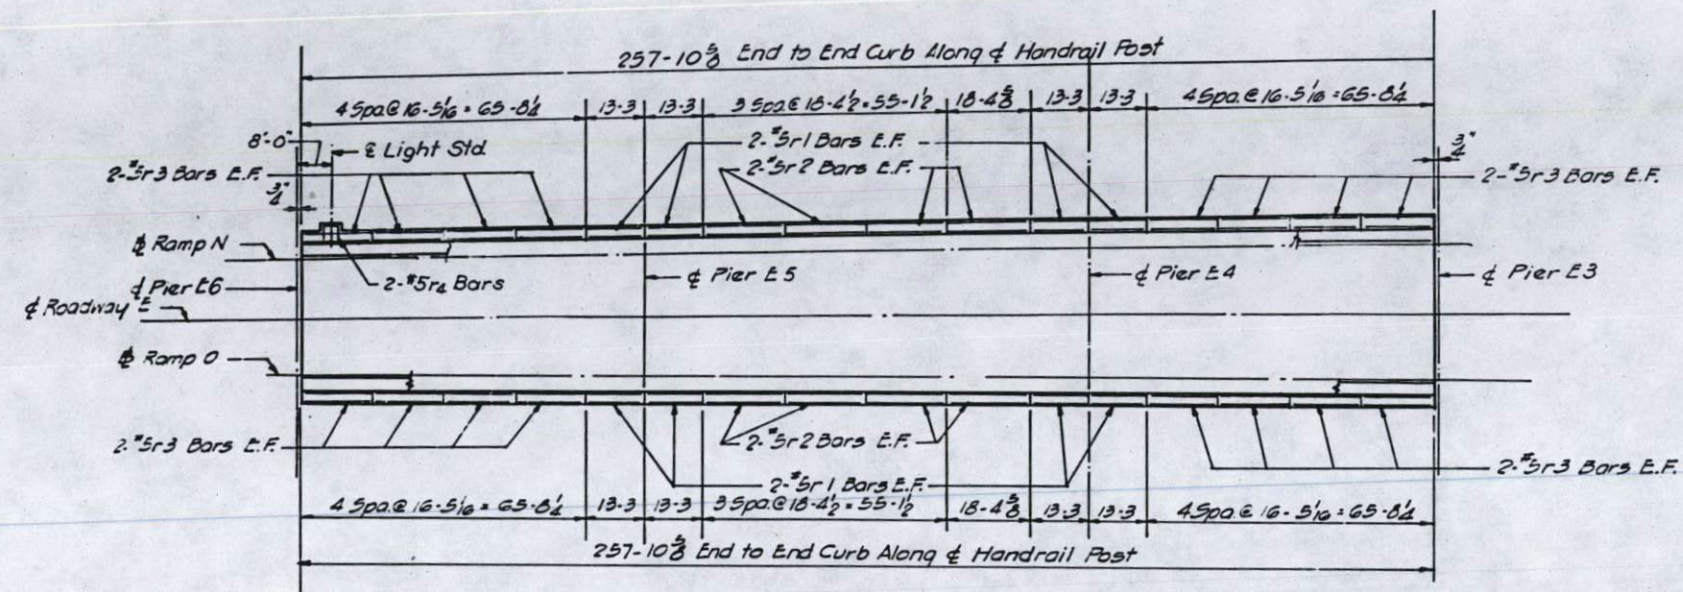 257-10⅝ End to End Curb Along ℄ Handrail Post
4 Spa.@ 16-5 1/16 = 65-8¼
13-3
13-3
3 Spa.@ 18-4½ = 55-1½
18-4⅝
13-3
13-3
4 Spa.@ 16-5 1/16 = 65-8¼
8'-0"
℄ Light Std.
2-#5r1 Bars E.F.
2-#5r2 Bars E.F.
2-#5r3 Bars E.F.
¾"
¾"
2-#5r3 Bars E.F.
Ramp N
2-#5r4 Bars
℄ Pier E6
℄ Pier E5
℄ Pier E4
℄ Pier E3
℄ Roadway E
Ramp O
2-#5r3 Bars E.F.
2-#5r2 Bars E.F.
2-#5r3 Bars E.F.
2-#5r1 Bars E.F.
4 Spa.@ 16-5 1/16 = 65-8¼
13-3
13-3
3 Spa.@ 18-4½ = 55-1½
18-4⅝
13-3
13-3
4 Spa.@ 16-5 1/16 = 65-8¼
257-10⅝ End to End Curb Along ℄ Handrail Post